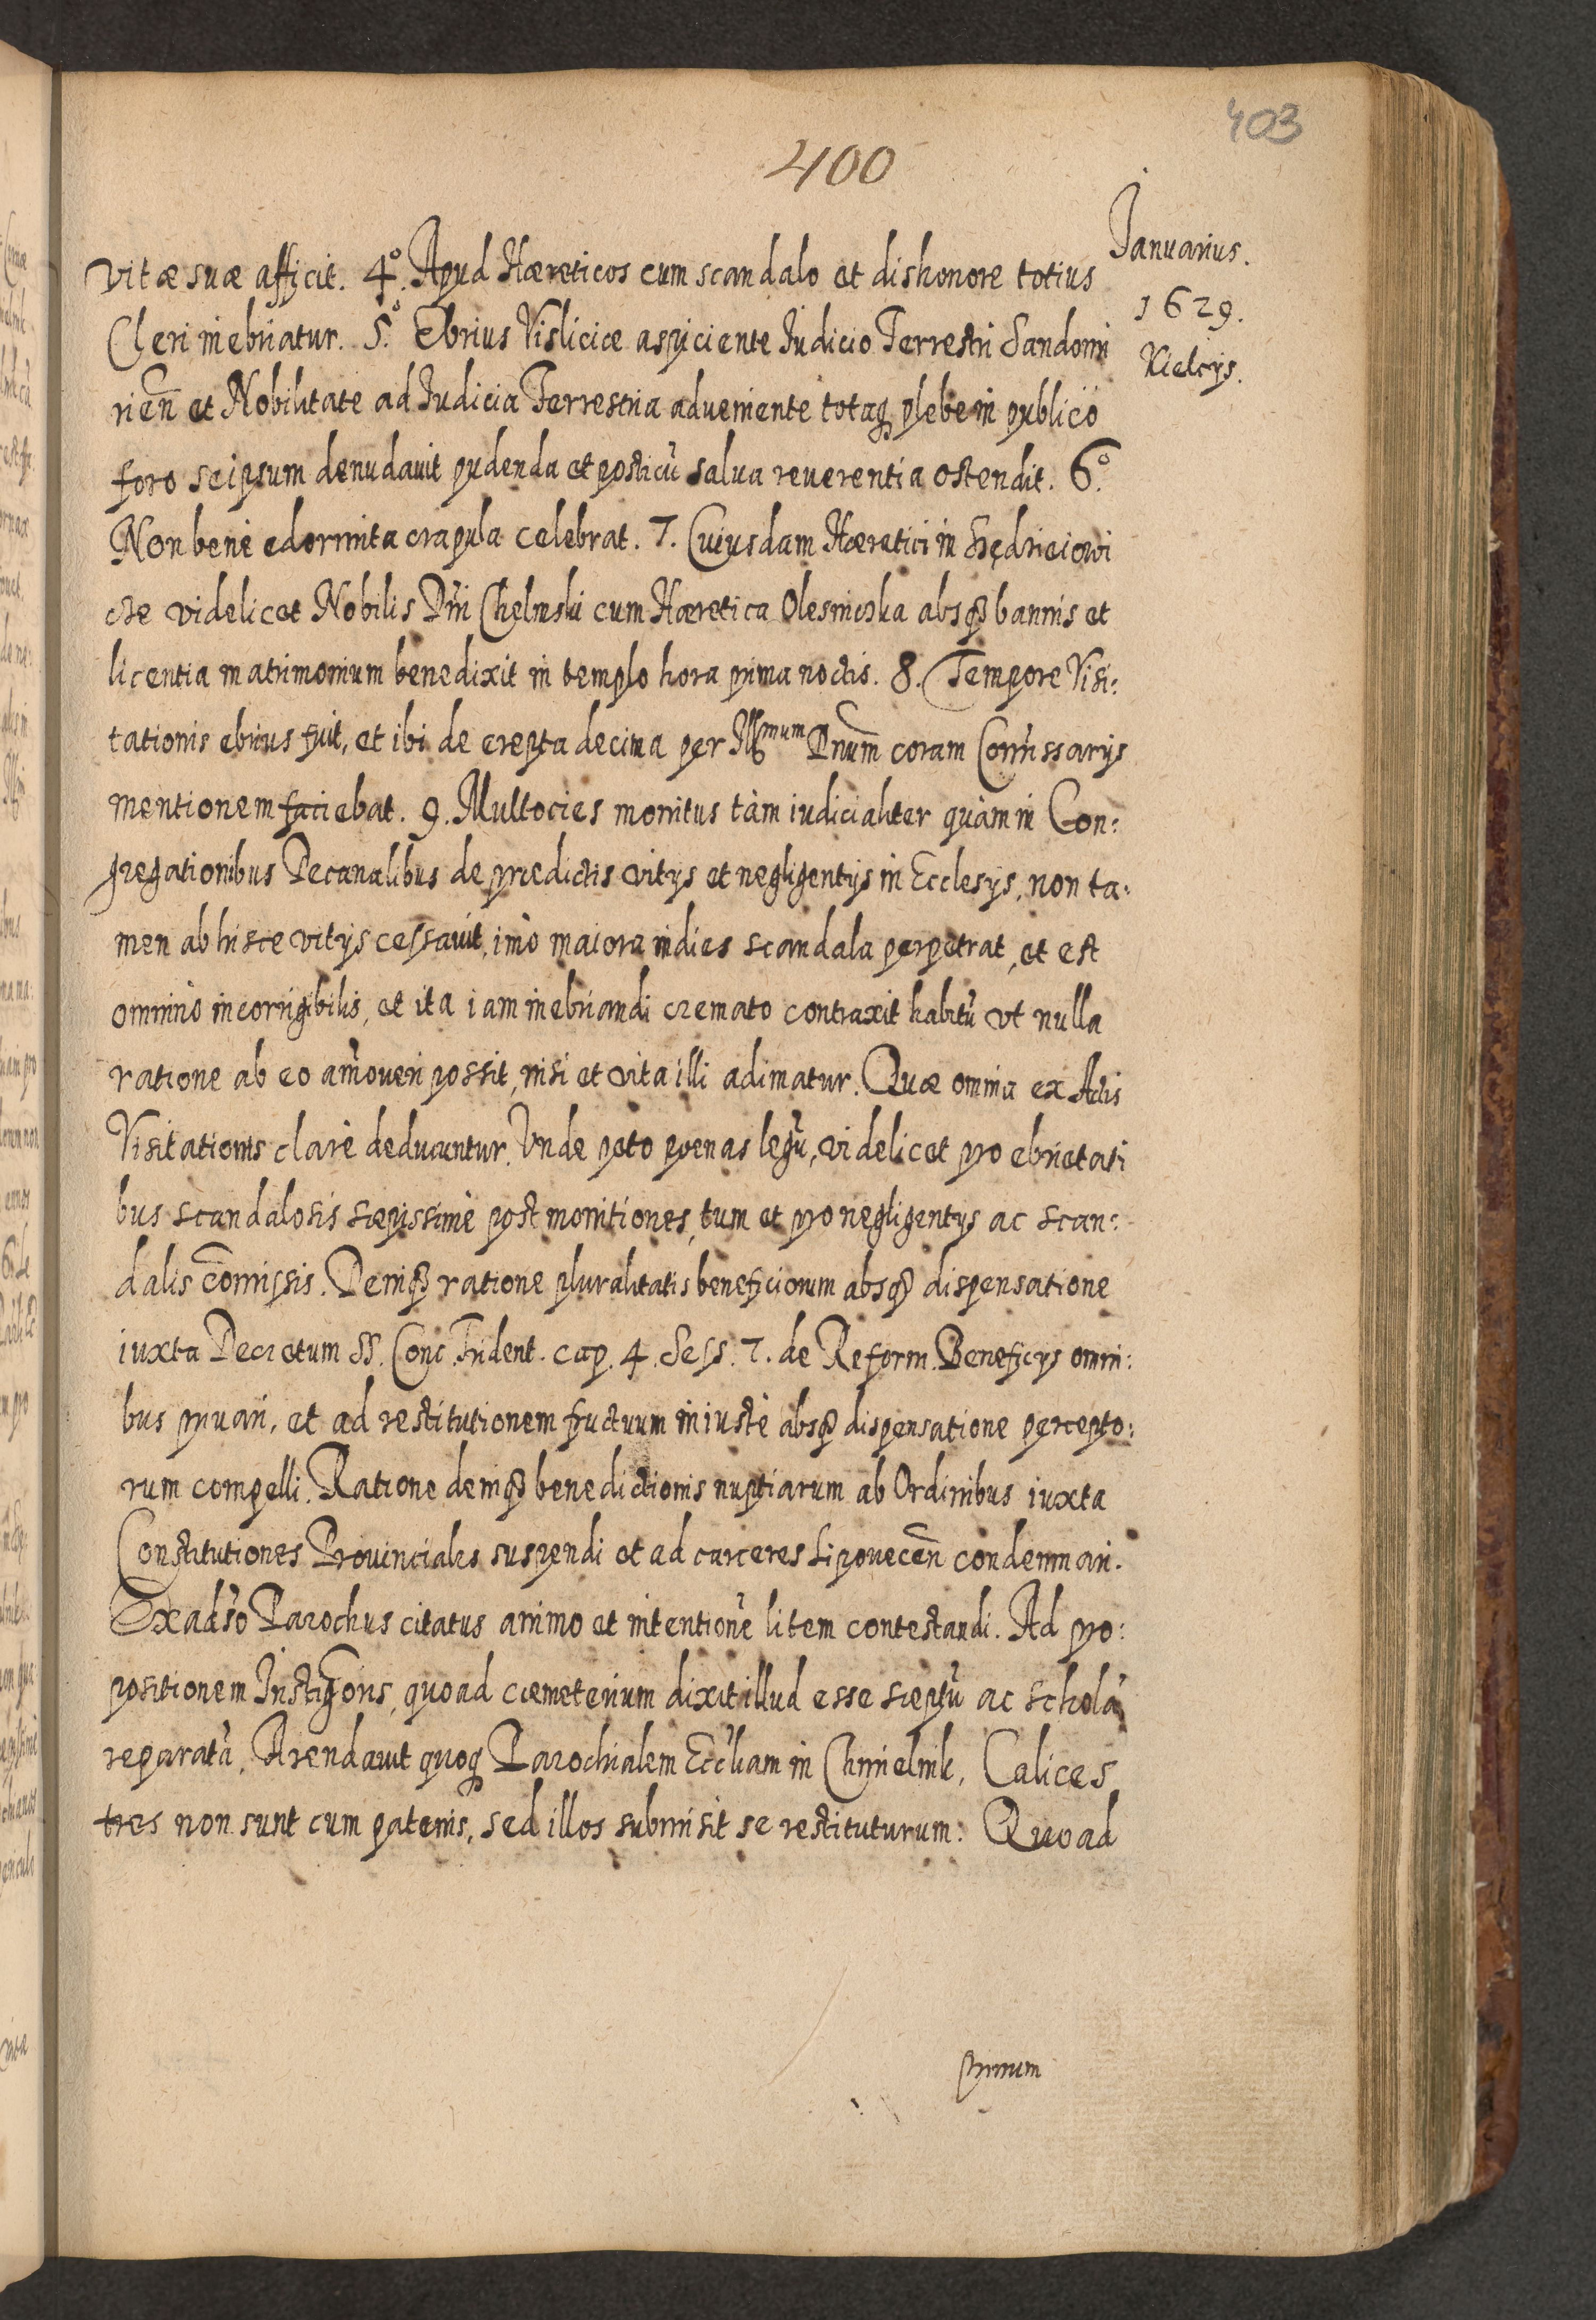 403
400
Januarius.
1629.
Kielcys.
vitæ suæ afficit. 4º. Apud Hæreticos cum scandalo et dishonore totius
Cleri inebriatur. 5.º Ebrius Visliciæ aspiciente Iudicio Terrestri Sandomi
rien̄ et Nobilitate ad Iudicia Terrestria adueniente totaq; plebe in publico
foro seipsum denudauit pudenda et posticū salua reuerentia ostendit. 6.º
Non bene edormita crapula celebrat. 7. Cuiusdam Hæretici in
cie videlicet Nobilis Dn̄i Chelmski cum Hæretica Olesnicka absq; bannis et
licentia matrimonium benedixit in templo hora prima noctis. 8. Tempore Visi:
tationis ebrius fuit, et ibi de erepta decima per Illmum Dnum̄ coram Com̄issarijs
mentionem faciebat. 9. Multocies monitus tàm iudicialiter quàm in Con:
gregationibus Decanalibus de prædictis vitijs et negligentijs in Ecclesijs, non ta:
men ab hisce vitijs cessauit, imò maiora indies scandala perpetrat, et est
omninò incorrigibilis, et ita iam inebriandi cremato contraxit habitū vt nulla
ratione ab eo am̄oueri possit, nisi et vita illi adimatur. Quæ omnia ex Actis
Visitationis clarè deducuntur. Vnde peto poenas legū, videlicet pro ebrietati
bus scandalosis sæpissimè post monitiones, tum et pro negligentijs ac scan:
dalis com̄issis. Deniq; ratione pluralitatis beneficiorum absq; dispensatione
iuxta Decretum SS. Conc. Trident. cap. 4. Sess. 7. de Reform. Beneficijs omni:
bus priuari, et ad restitutionem fructuum iniustè absq; dispensatione percepto:
rum compelli. Ratione deniq; benedictionis nuptiarum ab Ordinibus iuxta
Constitutiones Prouinciales suspendi et ad carceres Lipouecen̄ condemnari.
Ex adūso Parochus citatus animo et intentione litem contestandi. Ad pro:
positionem Instig̃oris, quoad cæmeterium dixit illud esse sæptū ac scholā
reparatā, Arendauit quoq; Parochialem Ecc̄liam in Chmielnik, Calices
tres non sunt cum patenis, sed illos submisit se restituturum: Quoad
primum